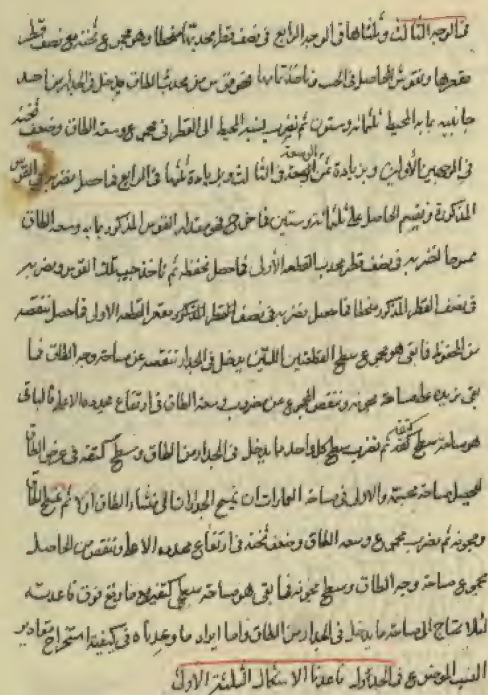 فى الوجه الثالث وثلثاها فى الوجه الرابع فى نصف قطر محدبه منحطا وهو مجموع ثخنه مع نصف قطر
مقعرها ونقوس الحاصل فى الجيب فاحدثامها فهو قوس من محدب الطاق يدخل فى الجدار من احد
جانبيه بما به المحيط ثلثمائه وستون ثم نضرب نسبه المحيط الى القطر فى مجموع وسعه الطاق وضعف ثخنه
فى الوجهين الأولين وبزيادة ثمن السعه فى الثالث وبزيادة ثلثها فى الرابع فما حصل نضربه فى القوس
المذكورة ونقسم الحاصل على ثلثمائه وستين فما خرج فهو مقدار القوس المذكور بما به وسعه الطاق
ممسوحا نضربه فى نصف قطر محدب القطعه الأولى فما حصل نحفظه ثم ناخذ جيب تلك القوس ونضربه
فى نصف القطر المذكور منحطا فما حصل نضربه فى نصف القطر المذكور مقعر القطعه الاولى فما حصل ننقصه
من المحفوظ فما بقى هو مجموع سطح القطعتين اللتين يدخل فى الجدار ننقصه عن مساحة وجه الطاق فما
بقى نزيده على مساحة مجوفه وننقص المجموع عن مضروب وسعه الطاق فى ارتفاع محدبه الاعلى فالباقى
هو مساحة سطح كتفيه ثم نضرب سطح كل واحد ما يدخل فى الجدار من الطاق وسطح كتفه فى عرض الطاق
ليحصل مساحة مجسمة والاولى فى مساحة العمارات ان نمسح الجدران الى منشاء الطاق اولا ثم نمسح الطاق
ومجوفه ثم نضرب مجموع وسعه الطاق وضعف ثخنه فى ارتفاع محدبه الاعلى وننقص من الحاصل
مجموع مساحة وجه الطاق وسطح مجوفه فما بقى هو مساحة سطح كتفيه ما وقع فوق قاعدته
لئلا نحتاج الى مساحة ما يدخل فى الجدار من الطاق واما ايراد ما وعدناه فى كيفية استخراج مقادير
النسب الموضوع فى الجداول فاعدنا الاشكال الثلثة الاول